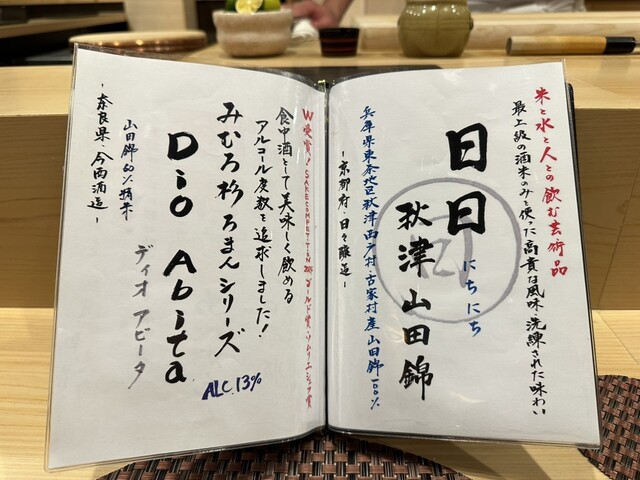 米と水と人との飲む芸術品
最上級の酒米のみを使った高貴な風味・洗練された味わい
日日
にちにち
秋津山田錦
兵庫県東条地区秋津西戸村・古家村産山田錦100%
-京都府・日々醸造-
W受賞!SAKE COMPETITION ゴールド賞・ソムリエジャパン賞
食中酒として美味しく飲める
アルコール度数を追求しました!
みむろ杉ろまんシリーズ
Dio Abita
ディオ アビータ
ALC.13%
山田錦60%精米
-奈良県・今西酒造-